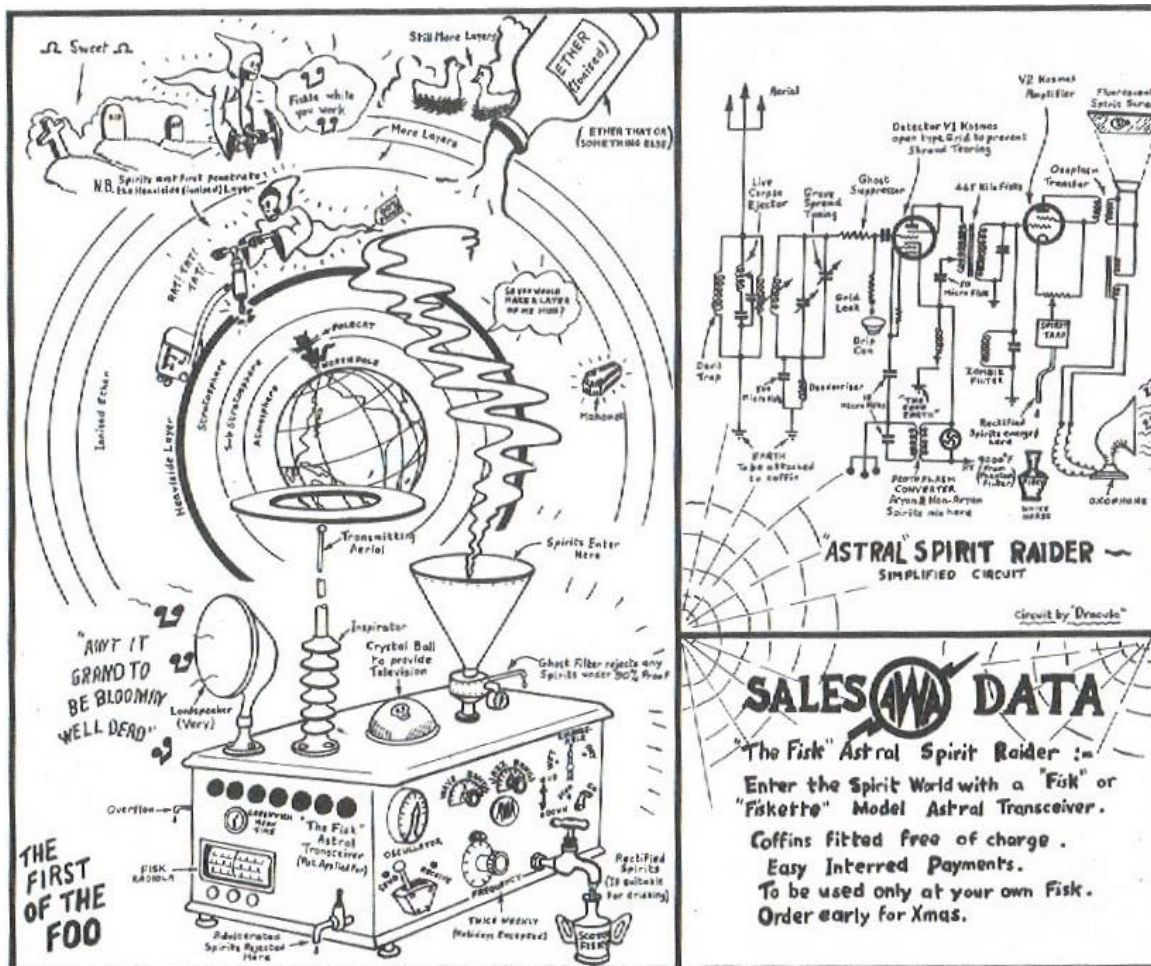 Ω Sweet Ω
Fiskle while
you work
Still More Layers
ETHER
(Ionised)
(ETHER THAT OR
SOMETHING ELSE)
More Layers
N.B. Spirits must first penetrate
the Heaviside (ionised) Layer
RAT! TAT!
TAT!
SO YOU WOULD
MAKE A LAYER
OF ME HUH?
POLECAT
NORTH POLE
Ionised Ether
Heaviside Layer
Stratosphere
Sub Stratosphere
Atmosphere
Transmitting
Aerial
Spirits Enter
Here
"AIN'T IT
GRAND TO
BE BLOOMIN'
WELL DEAD"
Loudspeaker
(Very)
Inspirator
Crystal Ball
to provide
Television
Ghost Filter rejects any
Spirits under 90% Proof
Overflow
GREENWICH
MEAN
TIME
"The Fisk"
Astral
Transceiver
(Pat. Applied For)
FISK
RADIOLA
OSCULLATOR
WAVE BANDS
AWA
WET
DRY
UP
DOWN
SEND
RECEIVE
FREQUENCY
TWICE WEEKLY
(Holidays Excepted)
Rectified
Spirits
(If suitable
for drinking)
SCOTCH
FISKY
Adulterated
Spirits Rejected
Here
THE
FIRST
OF THE
FOO
Aerial
Live
Corpse
Ejector
Grave
Spread
Tuning
Ghost
Suppressor
Detector V1 Kosmos
open type Grid to prevent
Shroud Tearing
V2 Kosmos
Amplifier
Fluorescent
Spirit
465 Kilo Fisks
Devil
Trap
Grid
Leak
Drip
Can
50
Micro Fisk
SPIRIT
TRAP
ZOMBIE
FILTER
Micro Fisk
Deodoriser
"THE
GOOD
EARTH"
Rectified
Spirits emerge
here
EARTH
To be attached
to coffin
PROTOPLASM
CONVERTER
Aryan & Non-Aryan
Spirits mix here
HT
9000°F
(From
Phantom
Filter)
FISKY
WHITE
HORSE
"ASTRAL" SPIRIT RAIDER ~
SIMPLIFIED CIRCUIT
Circuit by "Dracula"
SALES AWA DATA
"The Fisk" Astral Spirit Raider :=
Enter the Spirit World with a "Fisk" or
"Fiskette" Model Astral Transceiver.
Coffins fitted free of charge.
Easy Interred Payments.
To be used only at your own Fisk.
Order early for Xmas.